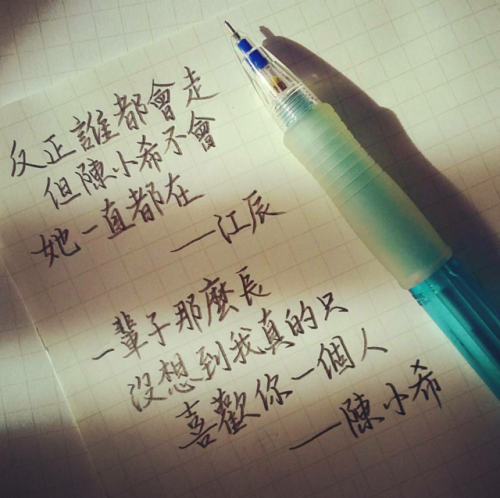 反正誰都會走
但陳小希不會
她一直都在
—江辰
一輩子那麼長
沒想到我真的只
喜歡你一個人
—陳小希